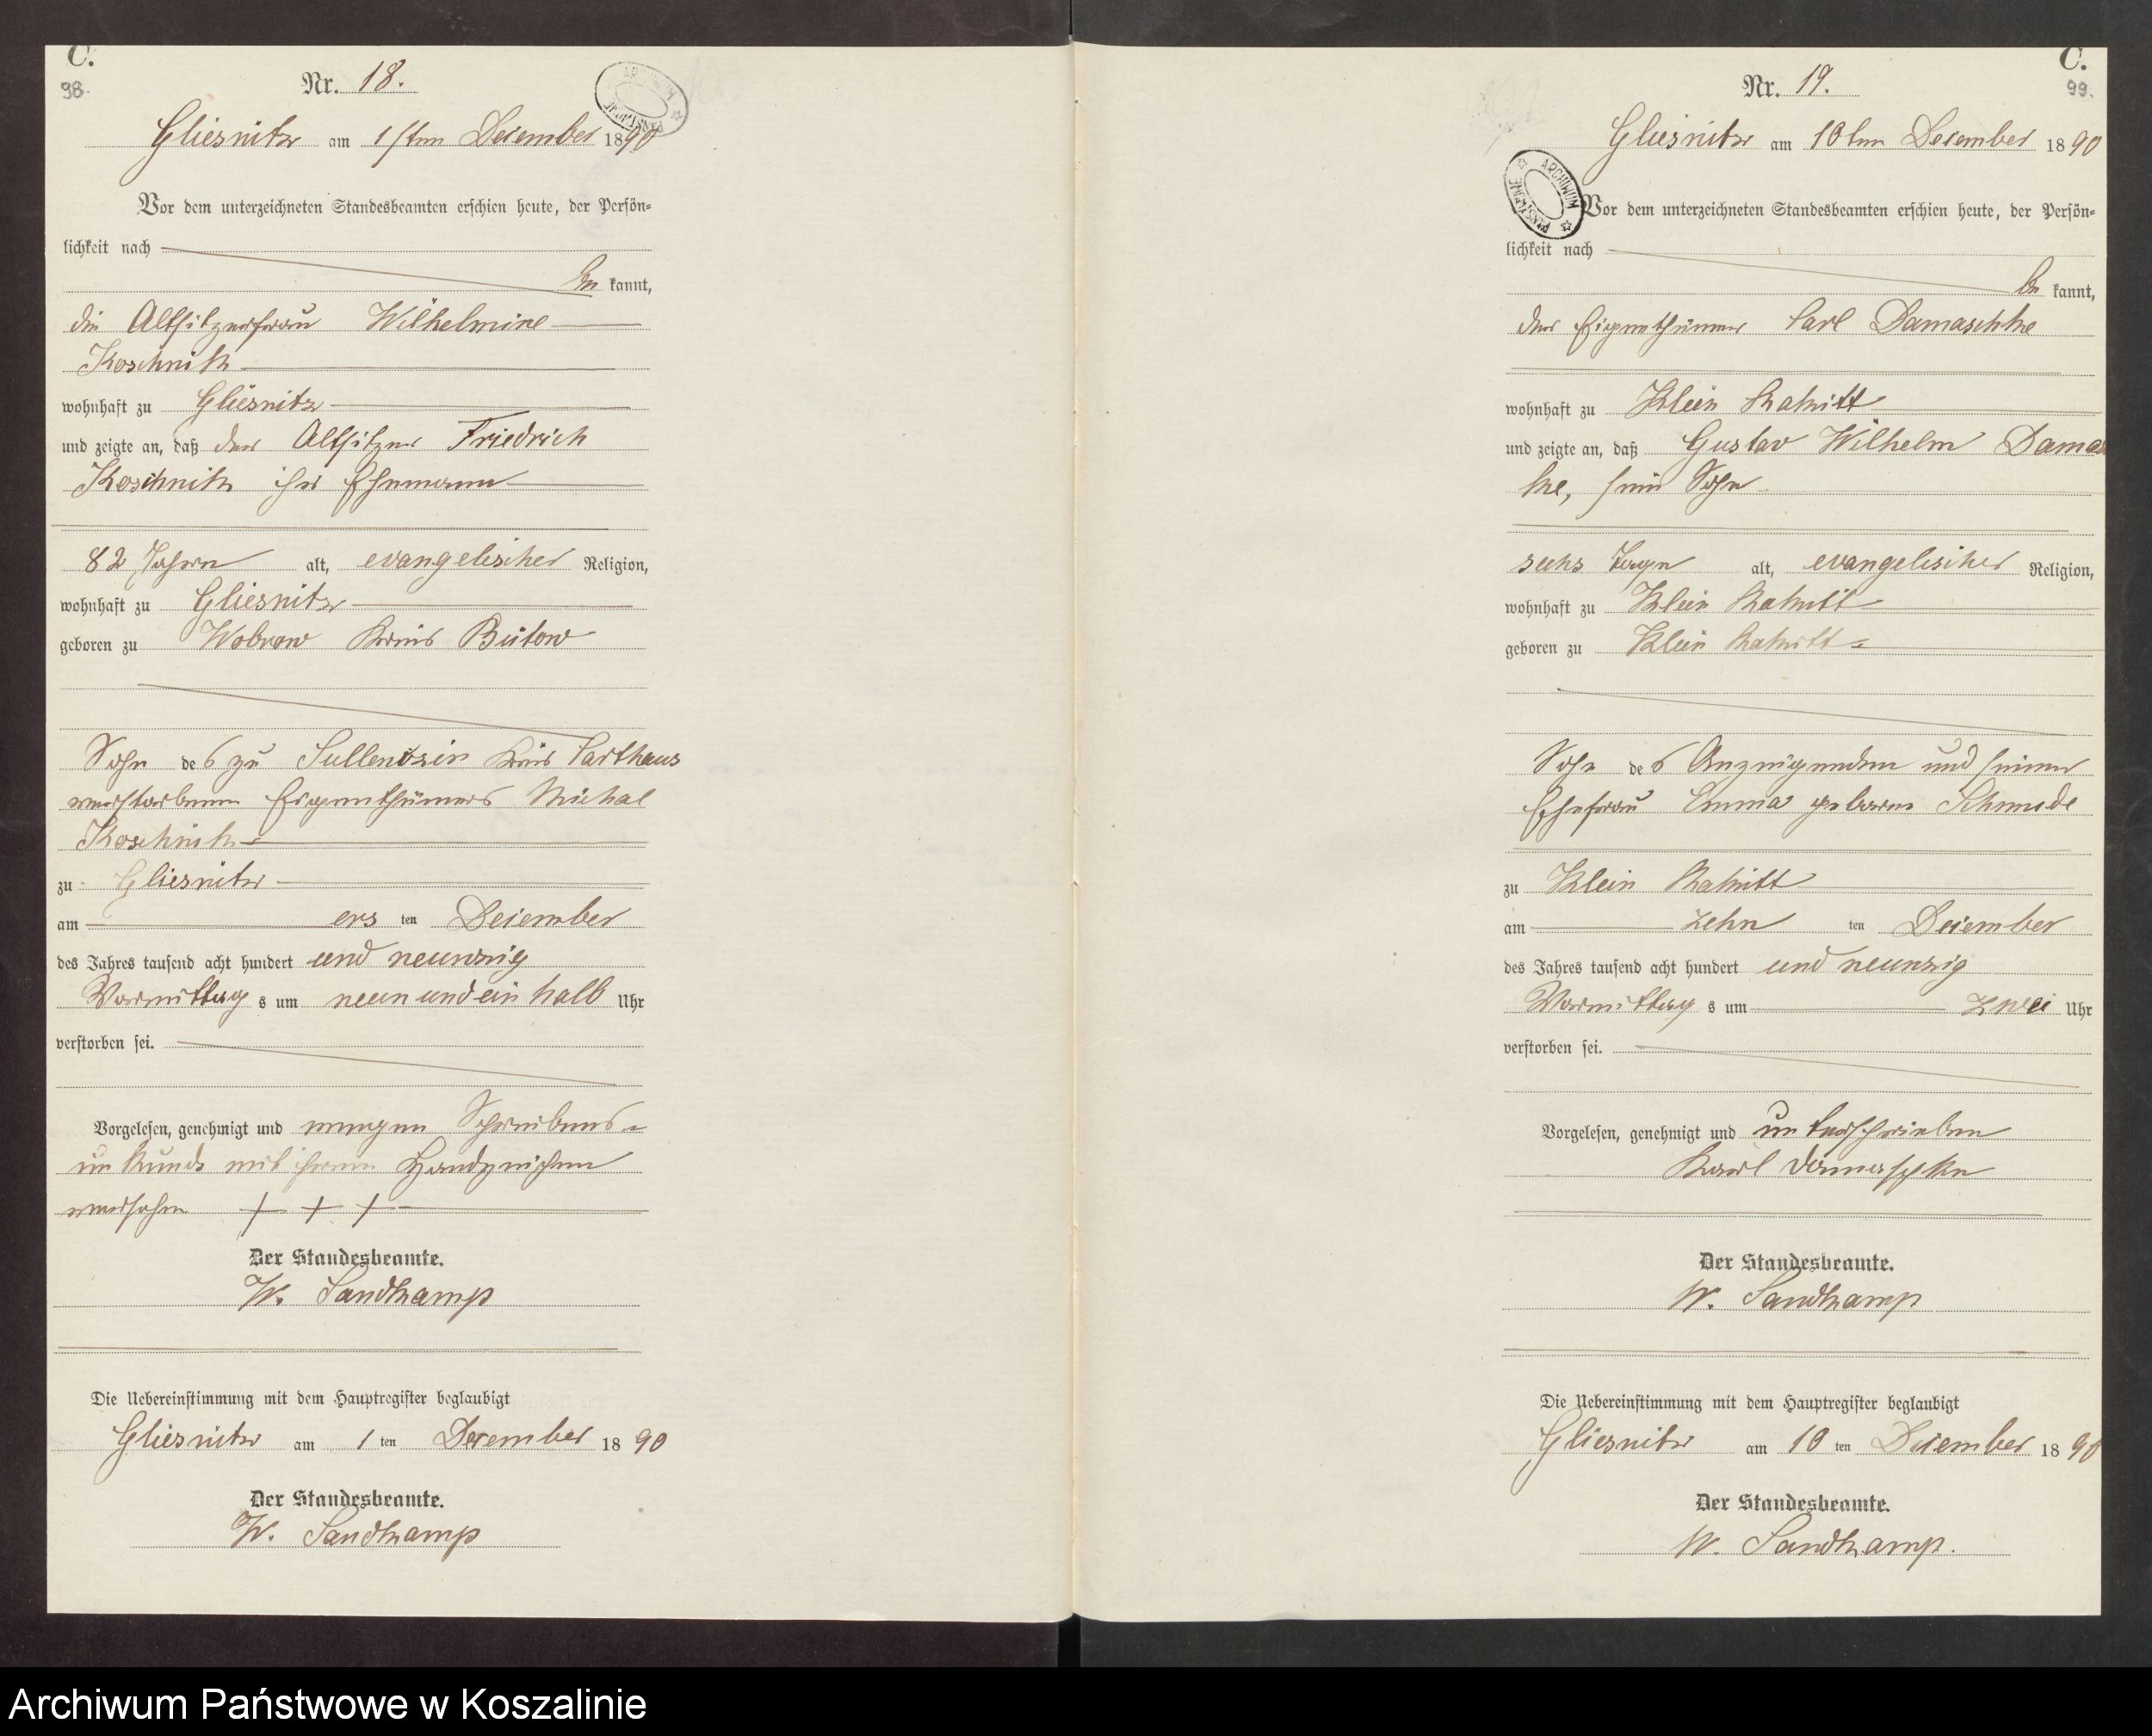 C.
98.
Nr. 18.
Gliesnitz am 1sten December 1890
Vor dem unterzeichneten Standesbeamten erschien heute, der Persön-
lichkeit nach
be kannt,
die Altsitzerfrau Wilhelmine
Koschnik
wohnhaft zu Gliesnitz
und zeigte an, daß der Altsitzer Friedrich
Koschnik ihr Ehemann
82 Jahren alt, evangelischer Religion,
wohnhaft zu Gliesnitz
geboren zu Kreis Bütow
Sohn des zu Sullenczin Kreis Carthaus
verstorbenen Eigenthümers Michal
Koschnik
zu Gliesnitz
am ers ten December
des Jahres tausend acht hundert und neunzig
Vormittag s um neun und ein halb Uhr
verstorben sei.
Vorgelesen, genehmigt und wegen Schreibens-
unkunde mit ihrem Handzeichen
versehen + + +
Der Standesbeamte.
W. Sandkamp
Die Uebereinstimmung mit dem Hauptregister beglaubigt
Gliesnitz am 1 ten December 18 90
Der Standesbeamte.
W. Sandkamp
C.
99.
Nr. 19.
Gliesnitz am 10ten December 18 90
ARCHIWUM PAŃSTWOWE
Vor dem unterzeichneten Standesbeamten erschien heute, der Persön-
lichkeit nach
be kannt,
der Eigenthümer Carl Damaschke
wohnhaft zu Klein Rakitt
und zeigte an, daß Gustav Wilhelm Damas
ke, sein Sohn
sechs Tage alt, evangelischer Religion,
wohnhaft zu Klein Rakitt
geboren zu Klein Rakitt
Sohn des Anzeigenden und seiner
Ehefrau Emma geborene Schmude
zu Klein Rakitt
am zehn ten December
des Jahres tausend acht hundert und neunzig
Vormittag s um zwei Uhr
verstorben sei.
Vorgelesen, genehmigt und unterschrieben
Karl Damaschke
Der Standesbeamte.
W. Sandkamp
Die Uebereinstimmung mit dem Hauptregister beglaubigt
Gliesnitz am 10 ten December 18 90
Der Standesbeamte.
W. Sandkamp.
Archiwum Państwowe w Koszalinie